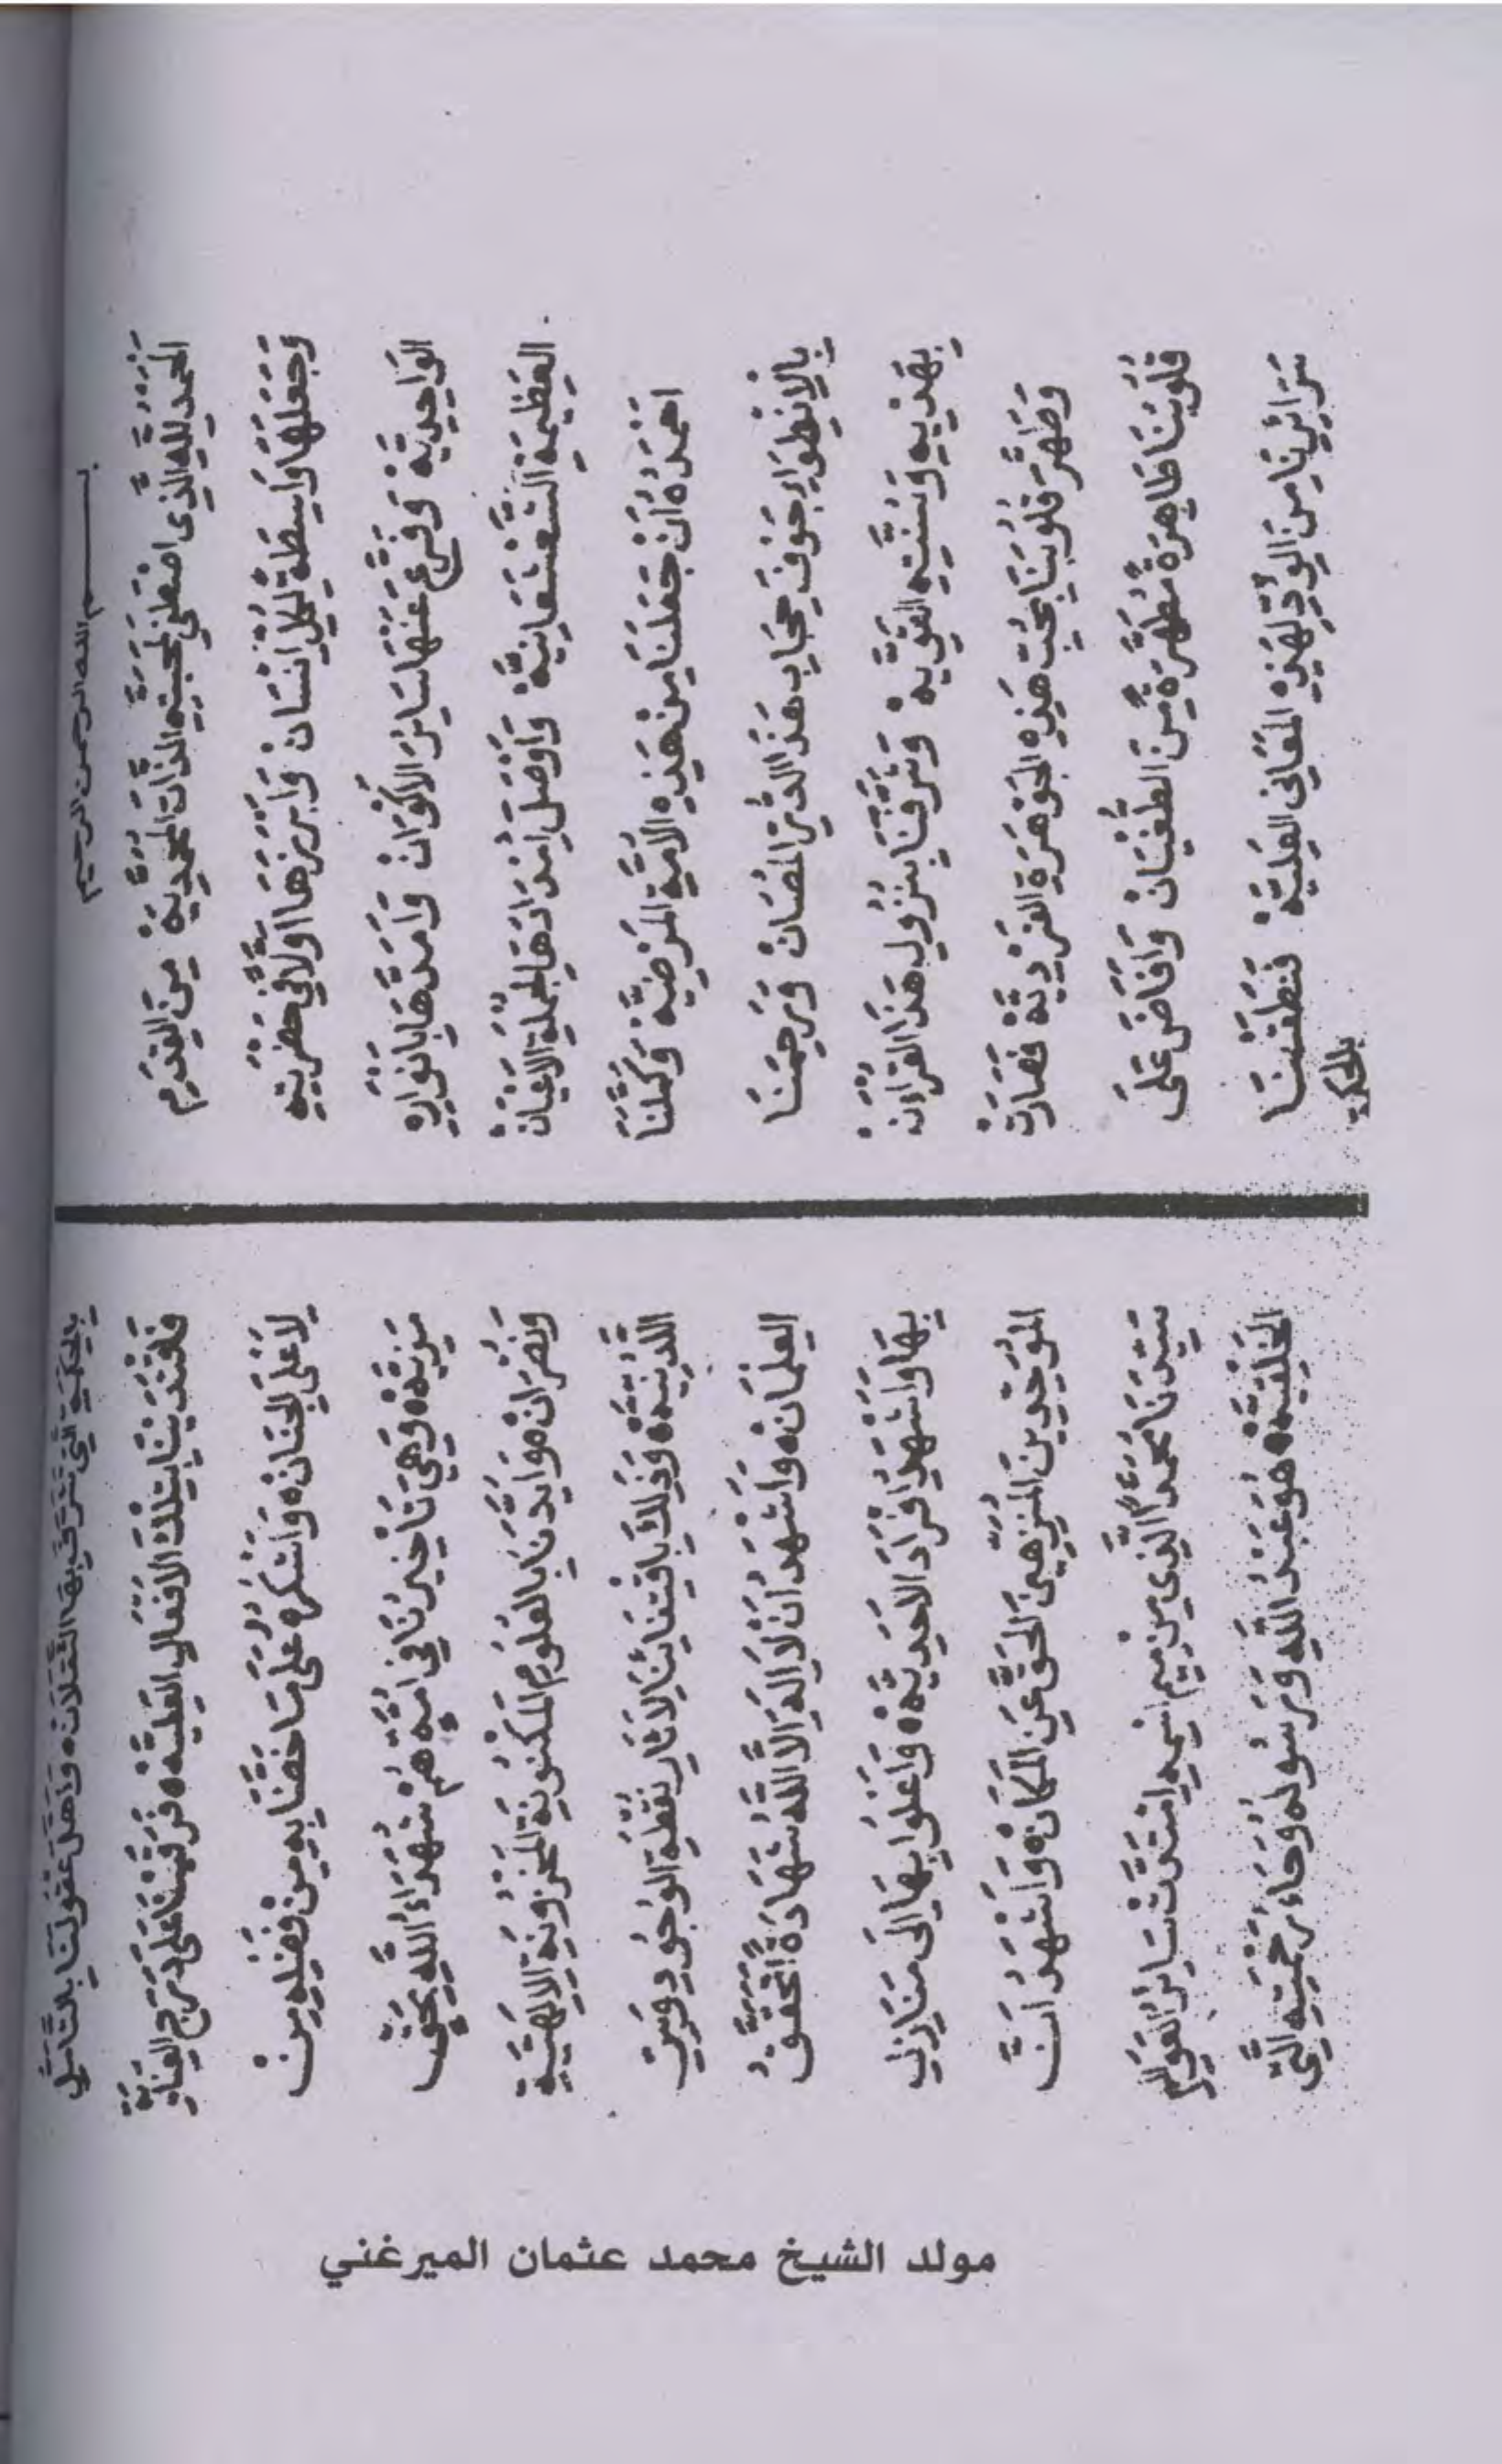 بسم الله الرحمن الرحيم
اَلْحَمْدُ لِلّٰهِ الَّذِى اصْطَفَى لِمَحَبَّتِهِ الذَّاتَ الْمُحَمَّدِيَّةْ مِنَ الْقِدَمِ
وَجَعَلَهَا وَاسِطَةً لِكُلِّ اِنْسَانْ وَاَبْرَزَهَا اَوَّلًا فِي حَضْرَتِهِ
الْوَاحِدِيَّةْ وَفَرَّعَ عَنْهَا سَائِرَ الْاَكْوَانْ وَاَمَدَّهَا بِاَنْوَارِهِ
الْعَظِيمَةِ الشَّعْشَعَانِيَّةْ وَاَوْصَلَ اِمْدَادَهَا لِجُمْلَةِ الْاَعْيَانْ
اَحْمَدُهُ اَنْ جَعَلَنَا مِنْ هَذِهِ الْاُمَّةِ الْمَرْضِيَّةْ وَكَمَّلَنَا
بِالْاِنْطِوَاءِ جَوْفَ حِجَابِ هَذَا الدُّرِّ الْمُصَانْ وَرَحِمَنَا
بِهَدْيِهِ وَسُنَّتِهِ الْقَوِيَّةْ وَشَرَّفَنَا بِنُزُولِ هَذَا الْقُرْاٰنْ
وَطَهَّرَ قُلُوبَنَا بِحُبِّ هَذِهِ الْجَوْهَرَةِ الْفَرْدِيَّةْ فَصَارَتْ
قُلُوبُنَا طَاهِرَةً مُطَهَّرَةً مِنَ الطُّغْيَانْ وَاَفَاضَ عَلَى
سَرَائِرِنَا مِنَ الْوُدِّ لِهَذِهِ الْمَعَانِى الْعَلِيَّةْ فَنَطَقْنَا
بالحكمة
بِالْحِكْمَةِ الَّتِى تَتَرَقَّى بِهَا الثَّقَلَانْ ه وَاَهَّلَ عُقُولَنَا بِالتَّاَسِّي
فَاقْتَدَيْنَا بِتِلْكَ الْاَفْعَالِ الْعَلِيَّهْ ه فَرَقَيْنَا عَلَى دَرَجِ الْعِنَايَةِ
لِاَعْلَى الْجِنَانْ ه وَاَشْكُرُهُ عَلَى مَا خَصَّنَا بِهِ مِنْ فَضْلِهِ مِنْ
مَزِيَّهْ ه وَهِيَ تَاْخِيرُنَا فِى اُمَّةٍ هُمْ شُهَدَاءُ اللّٰهِ بِحَقٍّ
وَنُصْرَانْ ه وَاَيَّدَنَا بِالْعُلُومِ الْمَكْنُونَةِ الْمَخْزُونَةِ الْاِلٰهِيَّةِ
اللَّدُنِّيَّهْ ه وَذٰلِكَ بِاقْتِفَائِنَا لِاٰثَارِ نُقْطَةِ الْوُجُودِ قُرَّتِ
الْعِلْمَانْ ه وَاَشْهَدُ اَنْ لَا اِلٰهَ اِلَّا اللّٰهُ شَهَادَةً اَتَحَقَّقُ
بِهَا وَاَشْهَدُ اَفْرَادَ الْاَحَدِيَّهْ ه وَاَعْلُو بِهَا اِلَى مَنَازِلِ
الْمُوَحِّدِينَ الْمُنَزِّهِينَ الْحَقَّ عَنِ الْمَكَانْ ه وَاَشْهَدُ اَنَّ
سَيِّدَنَا مُحَمَّدًا الَّذِى مِنْ مِيمِ اسْمِهِ امْتَدَّتْ سَائِرُ الْعَوَالِمِ
الْخَلْقِيَّهْ ه هُوَ عَبْدُ اللّٰهِ وَرَسُولُهُ وَحَاءُ رَحْمَتِهِ الَّتِى
مولد الشيخ محمد عثمان الميرغني